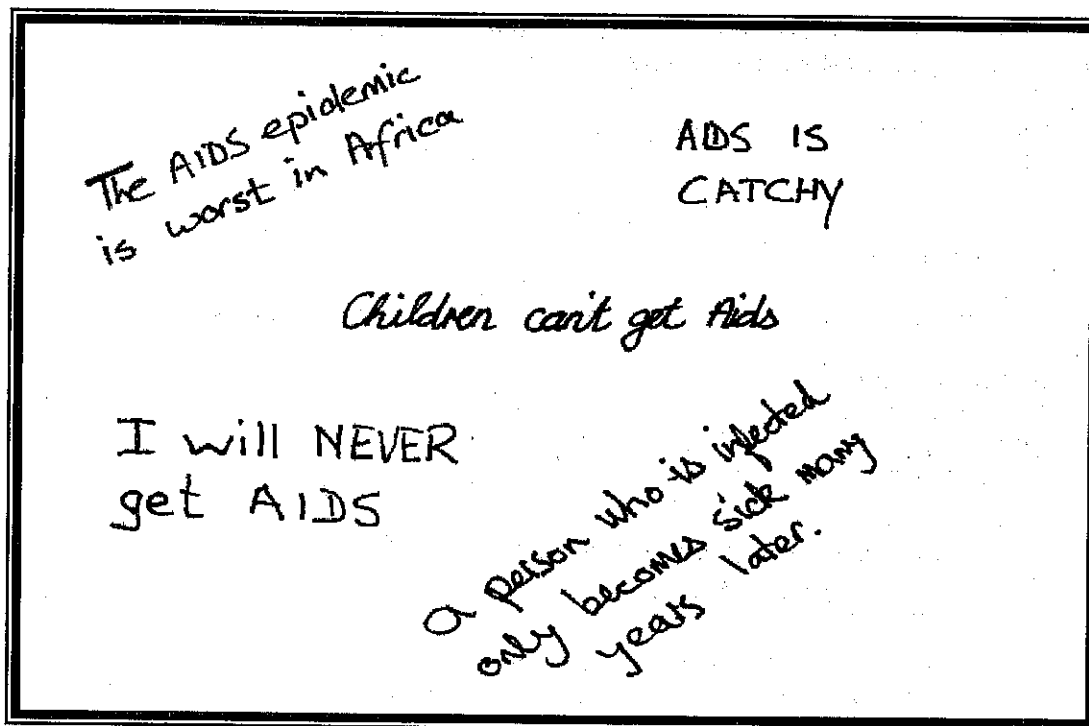 The AIDS epidemic
is worst in Africa
AIDS IS
CATCHY
Children can't get Aids
I will NEVER
get AIDS
a person who is infected
only becomes sick many
years later.